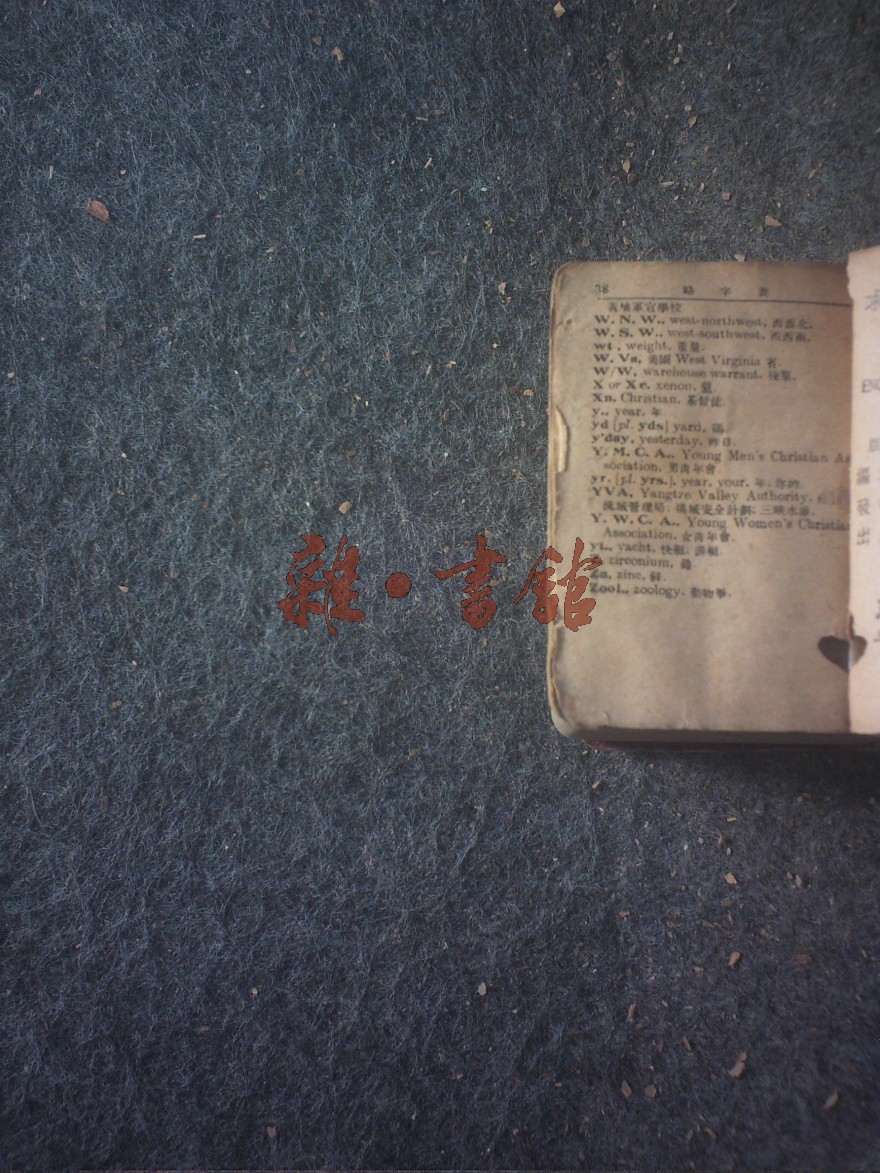 38 略字表
黃埔軍官學校
W. N. W., west-northwest, 西西北.
W. S. W., west-southwest, 西西南.
wt., weight, 重量.
W. Va, 美國 West Virginia 省.
W/W, warehouse warrant, 棧單.
X or Xe, xenon, 氙.
Xn, Christian, 基督徒.
y., year, 年
yd [pl. yds] yard, 碼.
y'day, yesterday, 昨日.
Y. M. C. A., Young Men's Christian As
sociation, 男青年會.
yr. [pl. yrs.], year, your, 年; 你的.
YVA, Yangtze Valley Authority,
流域管理局; 揚域安全計劃; 三峽水庫.
Y. W. C. A., Young Women's Christian
Association, 女青年會.
yt., yacht, 快艇; 游艇.
zirconium, 鋯
Zn, zinc, 鋅.
Zool., zoology, 動物學.
ENG
編
發
出
雜·書館